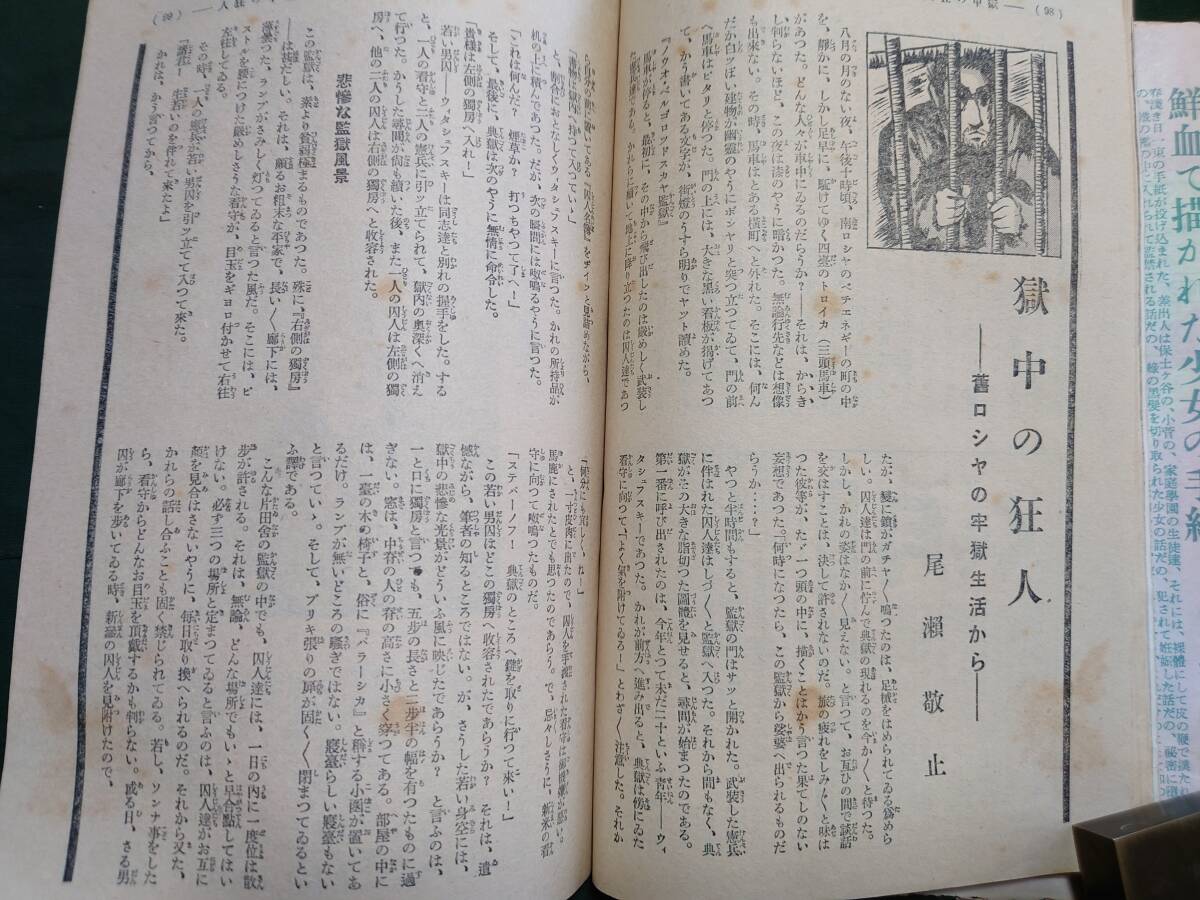 (98)
獄中の狂人
――舊ロシヤの牢獄生活から――
尾瀬敬止
八月の月のない夜、午後十時頃、南ロシヤのペチエネギーの町の中
を、靜かに、しかし足早に、駆けてゆく四臺のトロイカ(三頭馬車)
があつた。どんな人々が車中にゐるのだらうか?――それは、からき
し判らないほど、この夜は漆のやうに暗かつた。無論行先などは想像
も出來ない。その時、馬車はとある横町へと外れた。そこには、何ん
だか白ッぽい建物が幽靈のやうにボンヤリと突つ立つてゐて、門の前
へ馬車はピタリと停つた。門の上には、大きな黒い看板が掲げてあつ
て、かう書いてある文字が、街燈のうす明りでヤット讀めた。
『ノウオ・ベルゴロツドスカヤ監獄』
馬車が停ると、最初に、その中から飛び出したのは嚴めしく武裝し
た憲兵達である。かれらに續いて地上に降り立つたのは囚人達であつ
たが、髪に鎖がガチヤ/\鳴つたのは、足械をはめられてゐる爲めら
しい。囚人達は門の前に佇んで典獄の現れるのを今か/\と待つた。
しかし、かれの姿はなか/\見えない。と言つて、お互ひの間で談話
を交はすことは、決して許されないのだ。旅の疲れをしみ/″\と味は
つた彼等が、たゞ一つ頭の中に、描くことはかう言つた果てしのない
妄想であつた『何時になつたら、この監獄から娑婆へ出られるものだ
らうか‥‥?』
やつと半時間もすると、監獄の門はサッと開かれた。武裝した憲兵
に伴はれた囚人達はしづ/\と監獄へ入つた。それから間もなく、典
獄がその大きな脂切つた圖體を見せると、尋問が始まつたのである。
第一番に呼び出されたのは、今年とつて未だ二十といふ靑年――ウィ
タシェフスキーであつた。かれが前方へ進み出ると、典獄は傍にゐた
看守に向つて、『よく氣を附けてゐろ!』とわざ/\注意した。それか
(99)
と、典獄はおとなしくウィタシェフスキーに言つた。かれの所持品が
机の上に積んであつた。だが、次の瞬間には呶鳴るやうに言つた。
「これは何んだ? 煙草か? 打つちやつて了へ!」
そして、最後に、典獄は次のやうに無情に命令した。
「貴様は左側の獨房へ入れ!」
若い男囚――ウィタシェフスキーは同志達と別れの握手をした。する
と、一人の看守と二人の憲兵に引ッ立てられて、獄内の奥深くへ消え
て行つた。かうした尋問が尚も續いた後、また一人の囚人は左側の獨
房へ、他の二人の囚人は右側の獨房へと收容された。
悲慘な監獄風景
この監獄は、素より貧弱極まるものであつた。殊に、『右側の獨房』
――は甚だしい。それは、頗るお粗末な平家で、長い/\廊下には、
薄暗つた。ランプがさみしく灯つてゐると言つた風だ。そこには、ピ
ストルを腰につけた嚴めしさうな看守が、目玉をギヨロ付かせて右往
左往してゐる。
その時、一人の憲兵が若い男囚を引ッ立てて入つて來た。
かれは、かう言つてから、
守に向つて呶鳴つたものだ。
「ステパーノフ! 典獄のところへ鍵を取りに行つて來い!」
この若い男囚はどこの獨房へ收容されたであらうか? それは、遺
憾ながら、筆者の知るところではない。が、さうした若い身空には、
獄中の悲慘な光景がどういふ風に映じたであらうか? と言ふのは、
一と口に獨房と言つても、五步の長さと二步半の幅を有つたものに過
ぎない。窓は、中脊の人の脊の高さに小さく穿つてある。部屋の中に
は、一臺の木の椅子と、俗に『パラーシカ』と稱する小函が置いてあ
るだけ。ランプが無いどころの騒ぎではない。寢臺らしい寢臺もない
と言つていゝ。そして、ブリキ張りの扉が固く/\閉まつてゐるとい
ふ譯である。
こんな片田舍の監獄の中でも、囚人達には、一日の内に一度位は散
步が許される。それは、無論、どんな場所でもいゝと早合點してはい
けない。必ず三つの場所と定まつてゐると言ふのは、囚人達がお互に
顔を見合はさないやうに、毎日取り換へられるのだ。それから又た、
かれらの話し合ふことも固く禁じられてゐる。若し、ソンナ事をした
ら、看守からどんなお目玉を頂戴するかも判らない。或る日、さる男
囚が廊下を歩いてゐる時、新論の囚人を見附けたので、